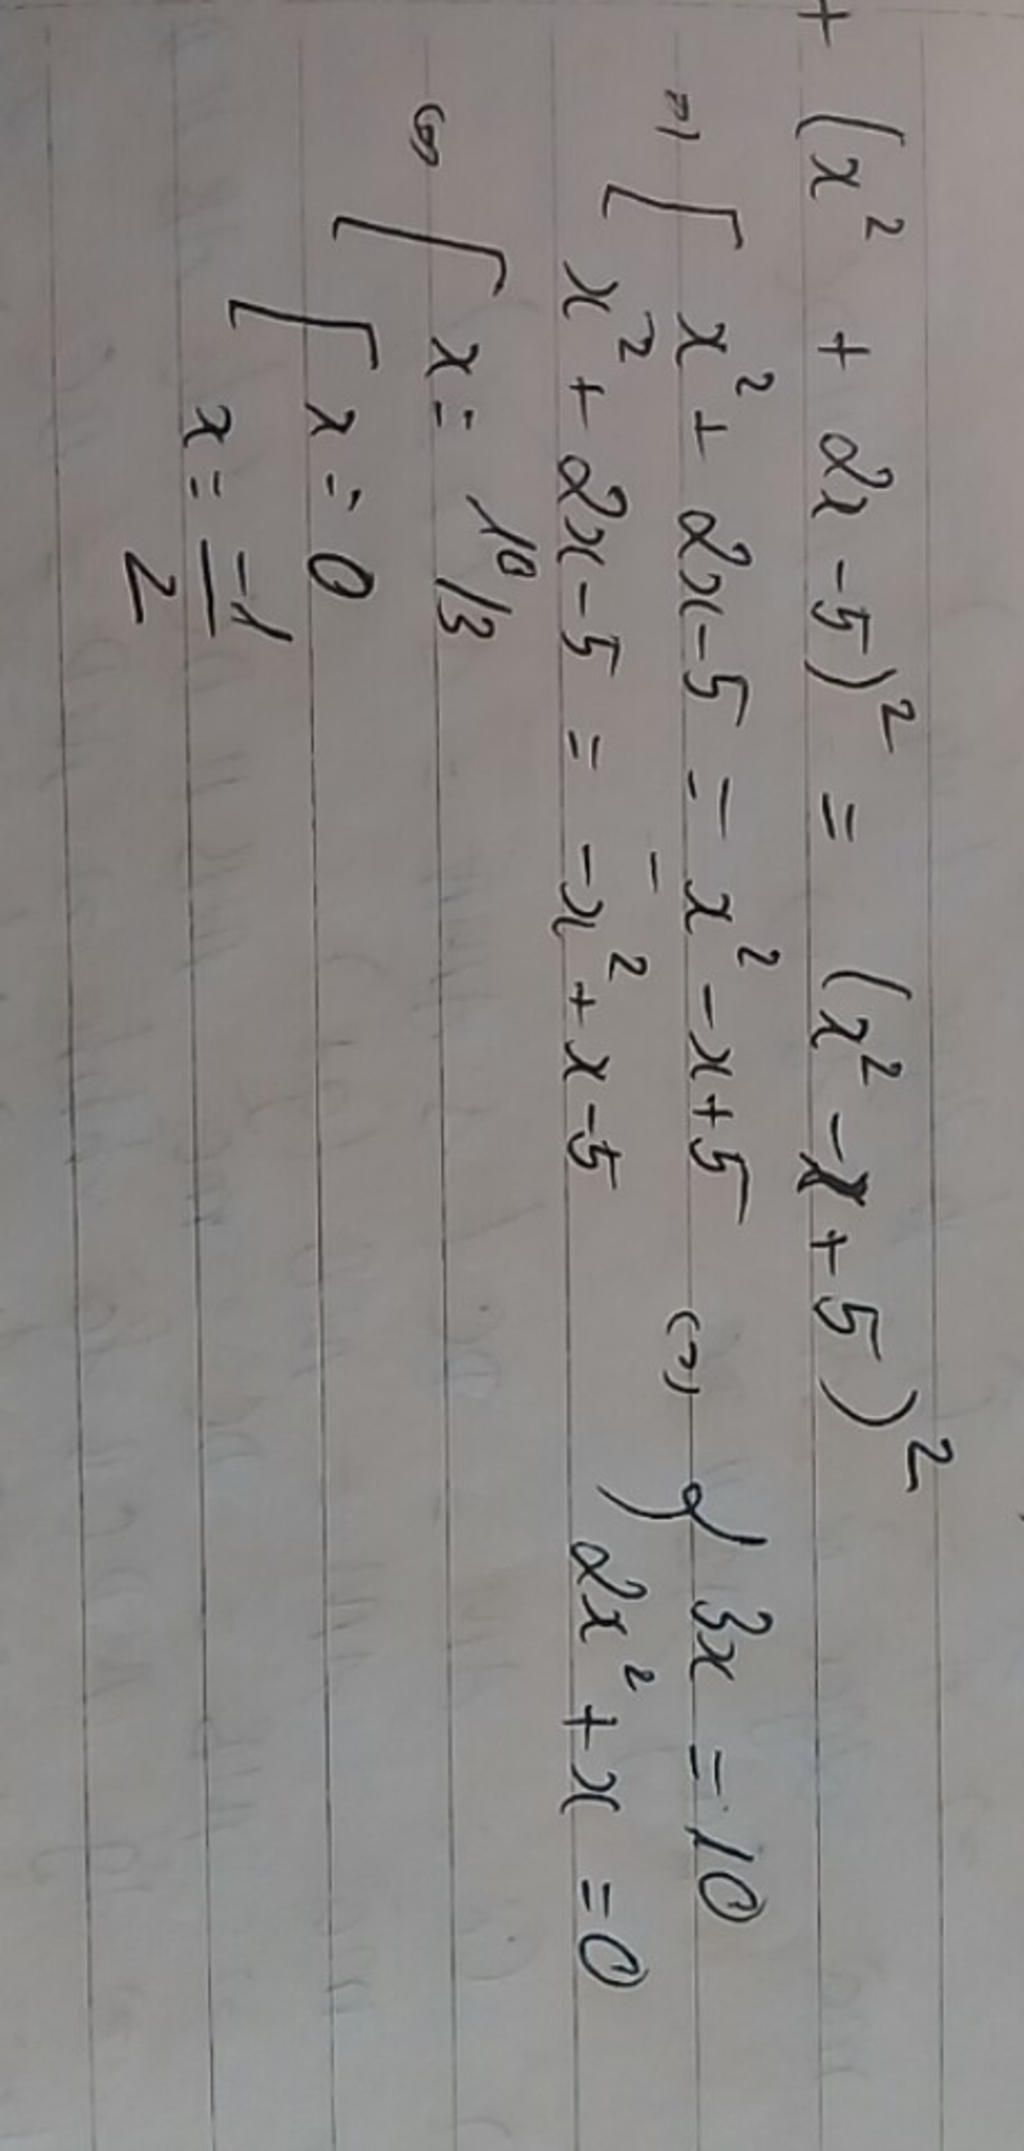 + (x² + 2x - 5)² = (x² - x + 5)²
⇔ [ x² + 2x - 5 = x² - x + 5 ⇔ { 3x = 10
[ x² + 2x - 5 = - x² + x - 5 { 2x² + x = 0
⇔ [ x = 10/3
[ x = 0
x = -1/2